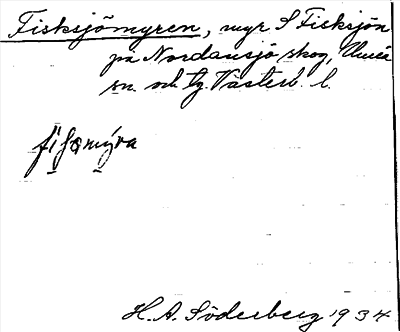 Fisksjömyren, myr S Fisksjön
på Nordansjö skog, Umeå
sn. och tg. Västerb. l.
fiʃamýra
H. A. Söderberg 1934